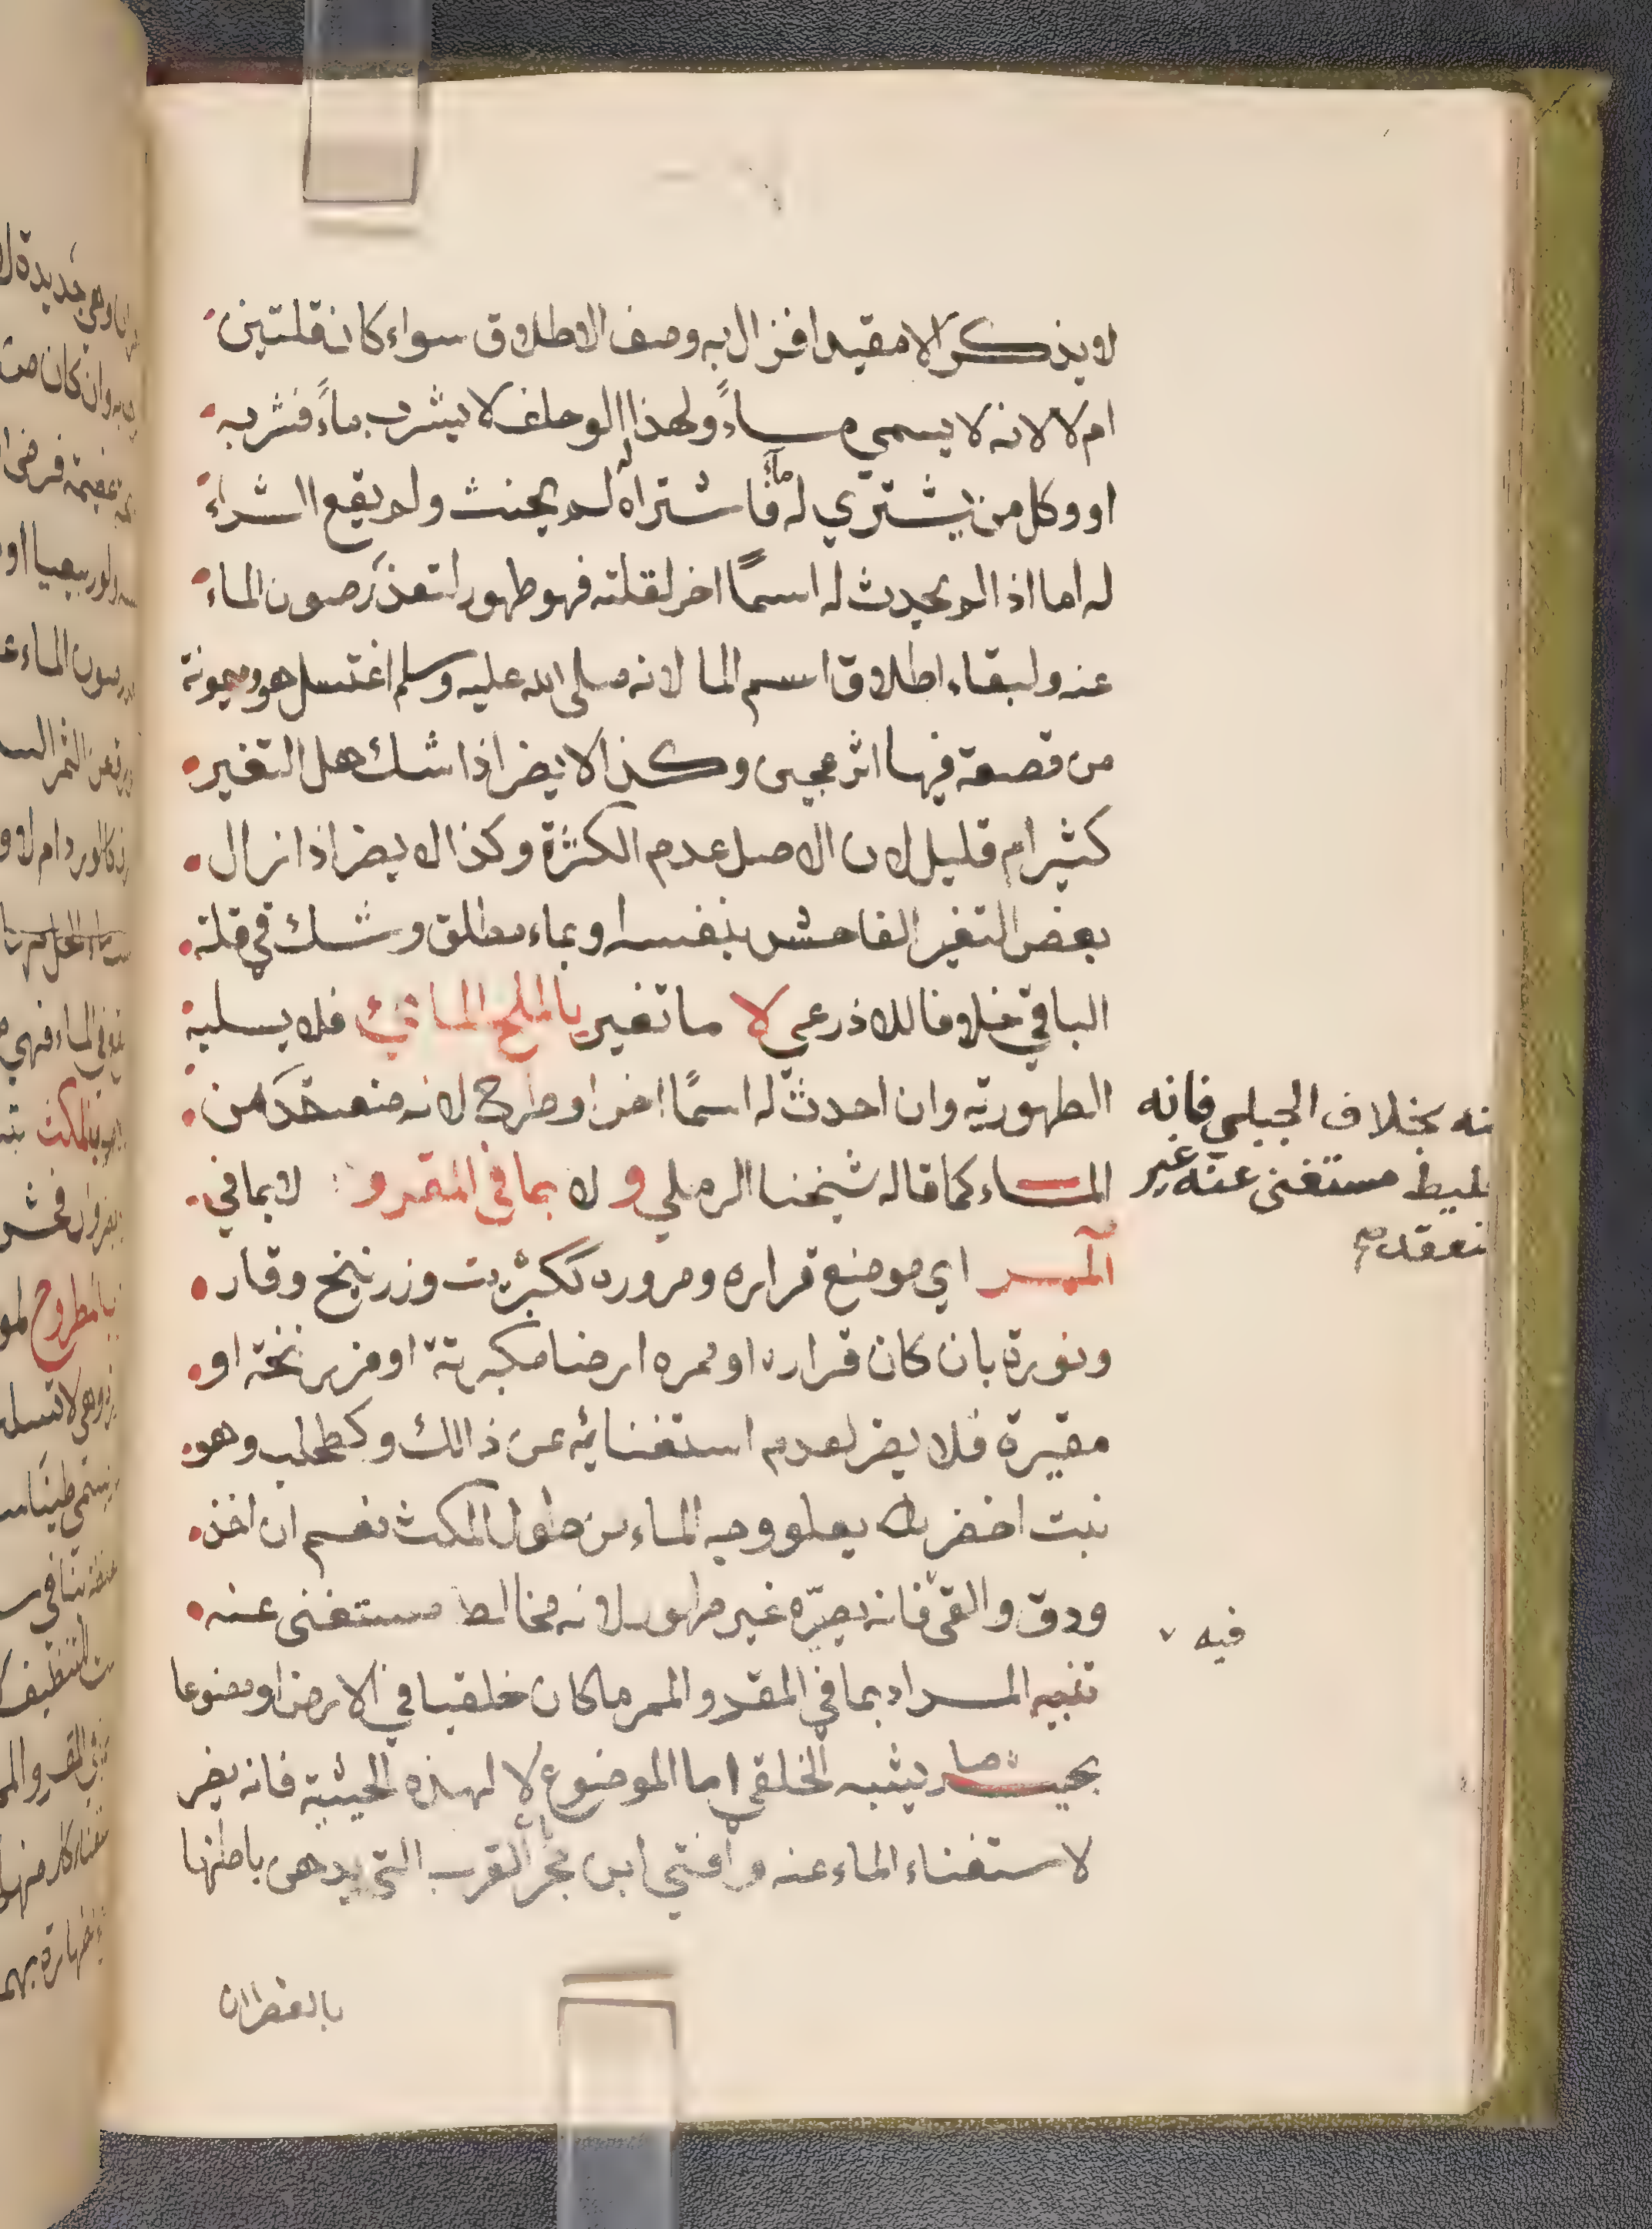 لا يذكر الا مقيدا فزال به وصف الاطلاق سواء كان قلتين
ام لا لانه لا يسمي ماءً ولهذا لو حلف لا يشرب ماءً فشربه
او وكل من يشتري له ماء فاشتراه له لم يحنث ولم يقع الشراء
له اما اذا لم يحدث له اسمًا اخر لقلته فهو طهور لتعذر صون الماء
عنه ولبقاء اطلاق اسم الما لانه صلى الله عليه وسلم اغتسل هو وميمونة
من قصعة فيها اثر عجين وكذا لا يضر اذا شك هل التغير
كثير ام قليل لان الاصل عدم الكثرة وكذا لا يضر اذا زال
بعض التغير الفاحش بنفسه او بماء مطلق وشك في قلة
الباقي خلافا للاذرعي لا ما تغير بالملح المائي فلا يسلبه
الطهورية وان احدث له اسمًا اخر او طرح لانه منعقد من
الماء كما قاله شيخنا الرملي و لا بما في المقر و لا بما في
الممر اي موضع قراره ومروره ككبريت وزرنيخ وقار
ونورة بان كان قراره او ممره ارضا مكبرتة او مزرنخة او
مقيرة فلا يضر لعدم استغنائه عن ذالك وكطحلب وهو
نبت اخضر يعلو وجه الماء من طول المكث نعم ان اخذ
ودق والقي فانه يصيره غير طهور لانه مخالط مستغنى عنه
تنبيه المراد بما في المقر والممر ما كان خلقيا في الارض او مصنوعا
بحيث صار يشبه الخلقي اما الموضوع لا لهذه الحيثية فانه يضر
لاستغناء الماء عنه وافتي ابن حجر بأن القرب التي يدهن باطنها
بالقطران
نه بخلاف الجبلي فانه
خليط مستغنى عنه غير
نعقد صح
فيه